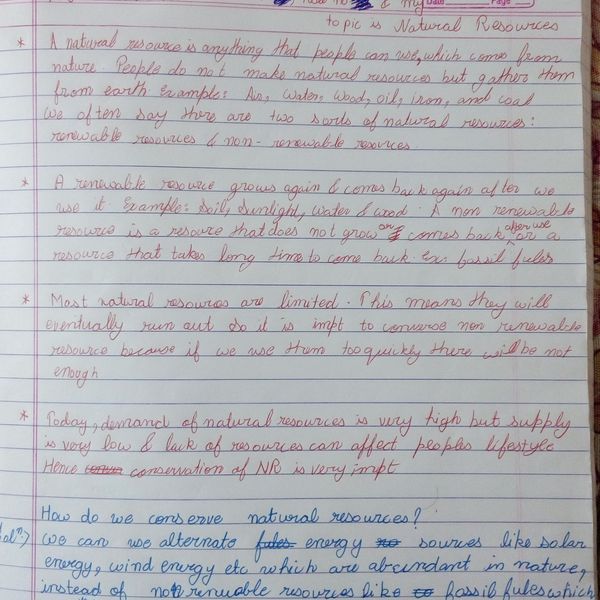 & my Date Page
topic is Natural Resources
* A natural resource is anything that people can use, which comes from
nature. People do not make natural resources but gathers them
from earth Example: Air, water, wood, oil, iron, and coal
we often say there are two sorts of natural resources:
renewable resources & non-renewable resources.
* A renewable resource grows again & comes back again after we
use it Example: Soil, Sunlight, water & wood. A non renewable
resource is a resource that does not grow or comes back after use or a
resource that takes long time to come back. Ex: fossil fules
* Most natural resources are limited. This means they will
eventually run out so it is impt to converse non renewable
resource because if we use them too quickly there will be not
enough
* Today, demand of natural resources is very high but supply
is very low & lack of resources can affect peoples lifestyle
Hence conservation of NR is very impt
How do we conserve natural resources?
Solⁿ:) We can use alternate energy sources like solar
energy, wind energy etc which are abundant in nature,
instead of non renewable resources like fossil fules which